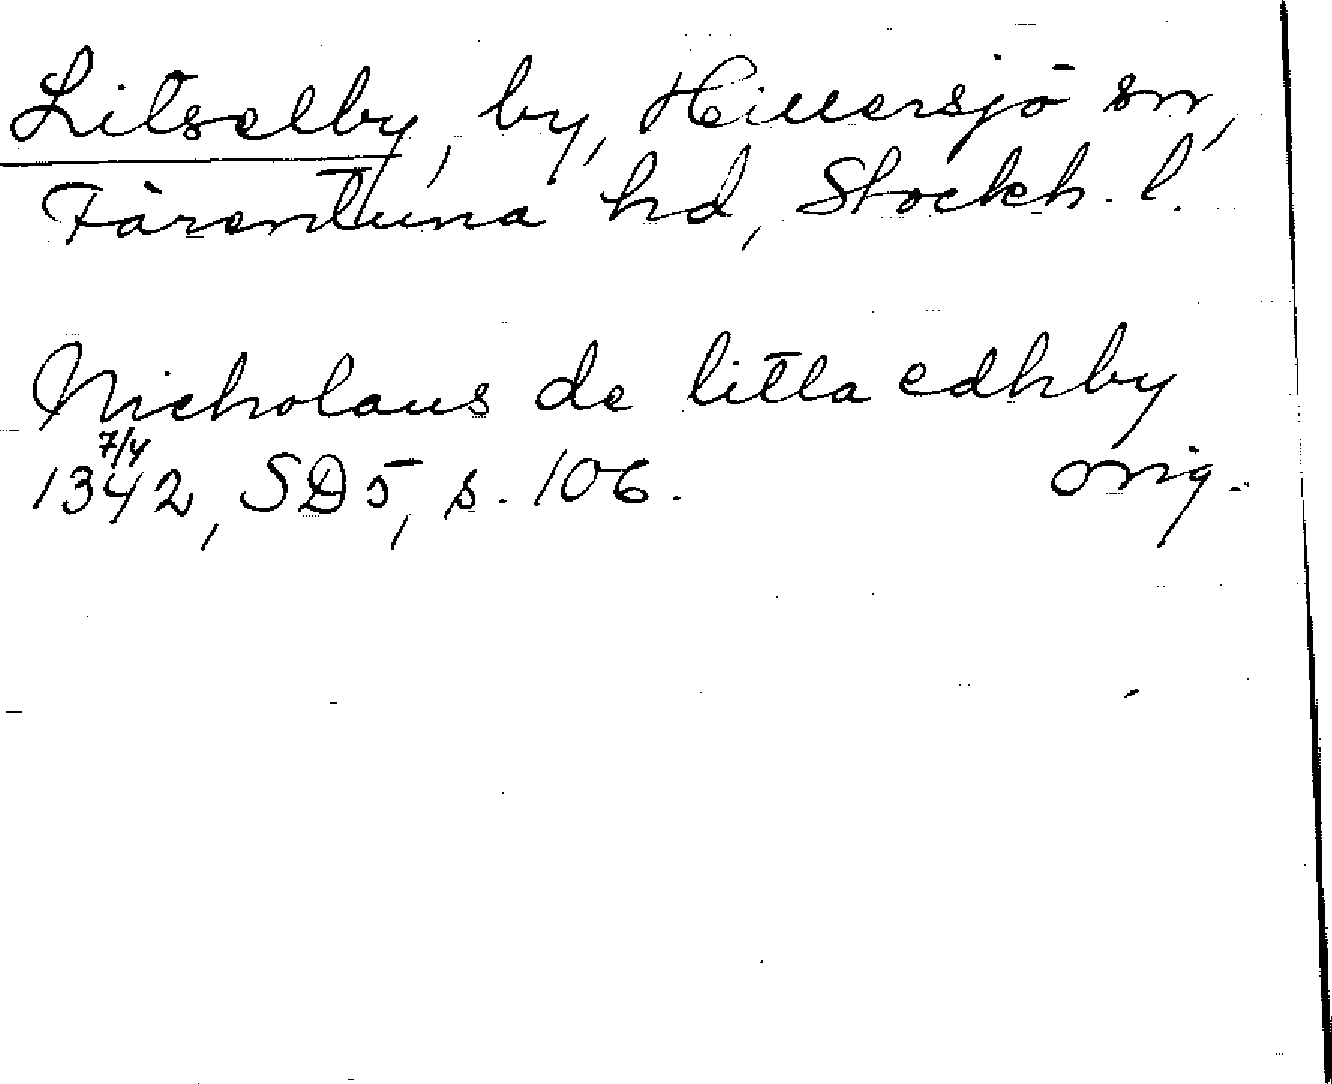 Litselby, by, Hillersjö sn,
Färentuna hd, Stockh. l.
Nicholaus de litla edhby
7/4
1342, SD 5, s. 106. orig.